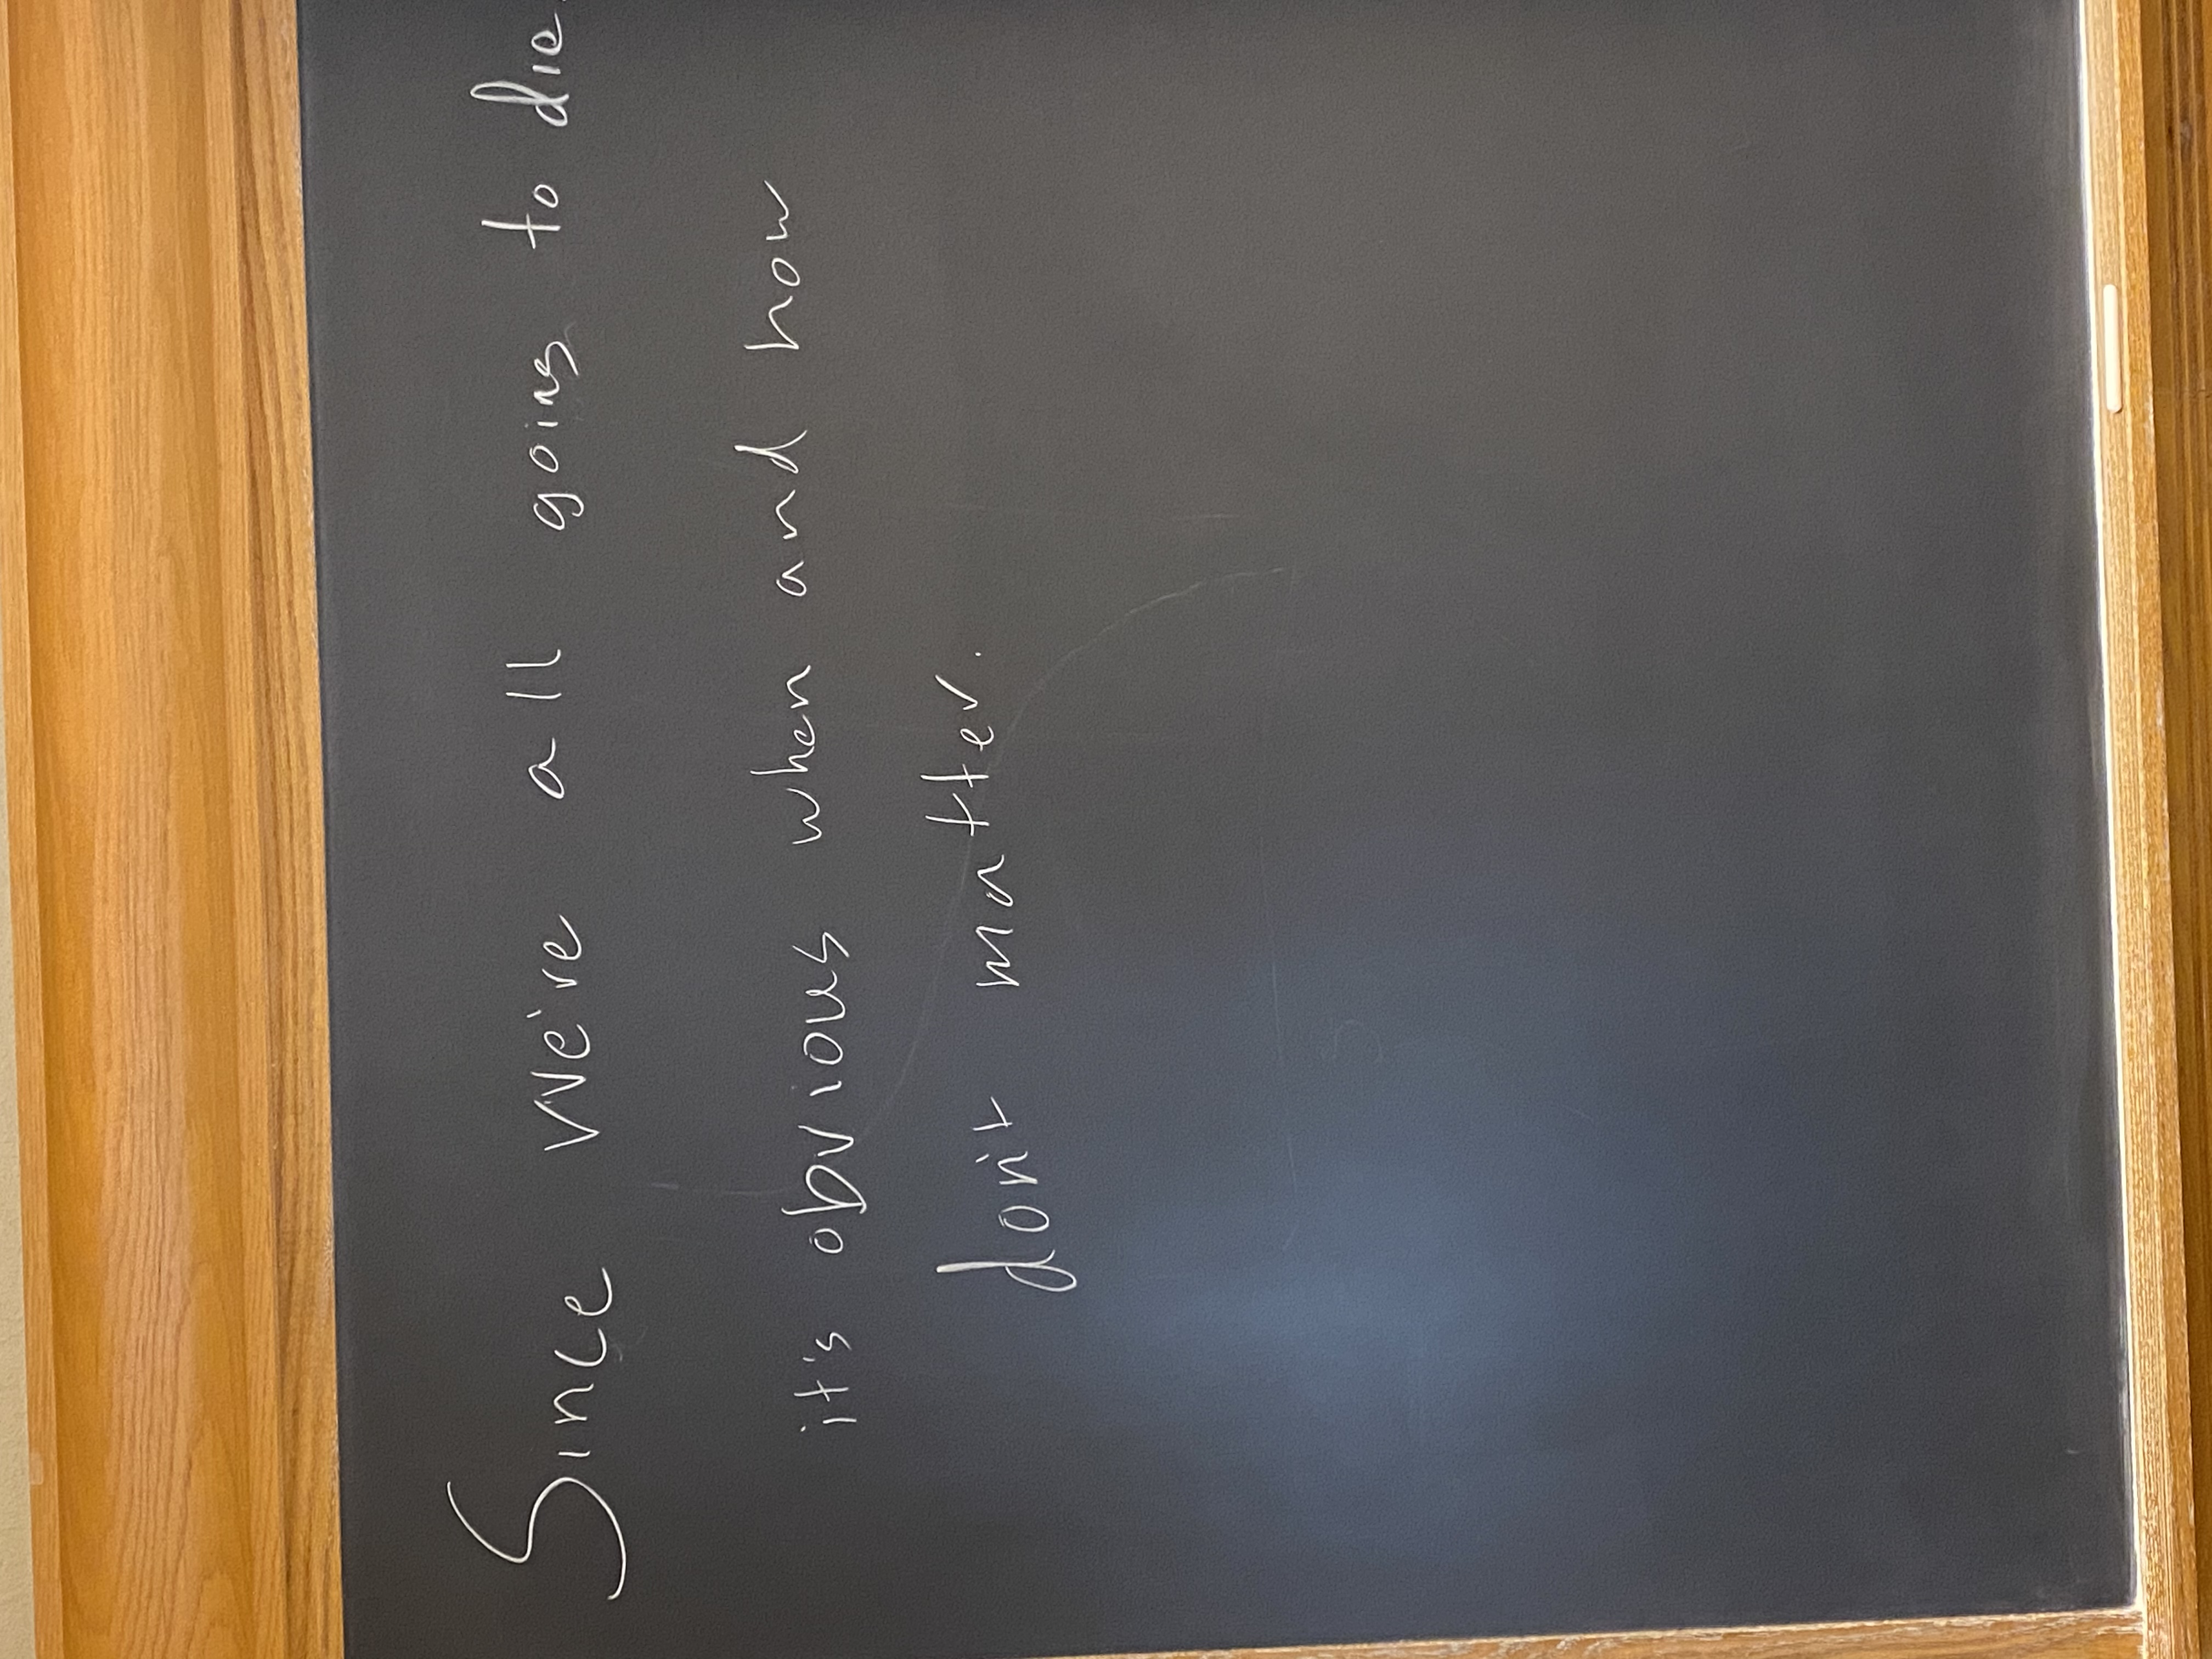 Since we're all going to die,
it's obvious when and how
don't matter.